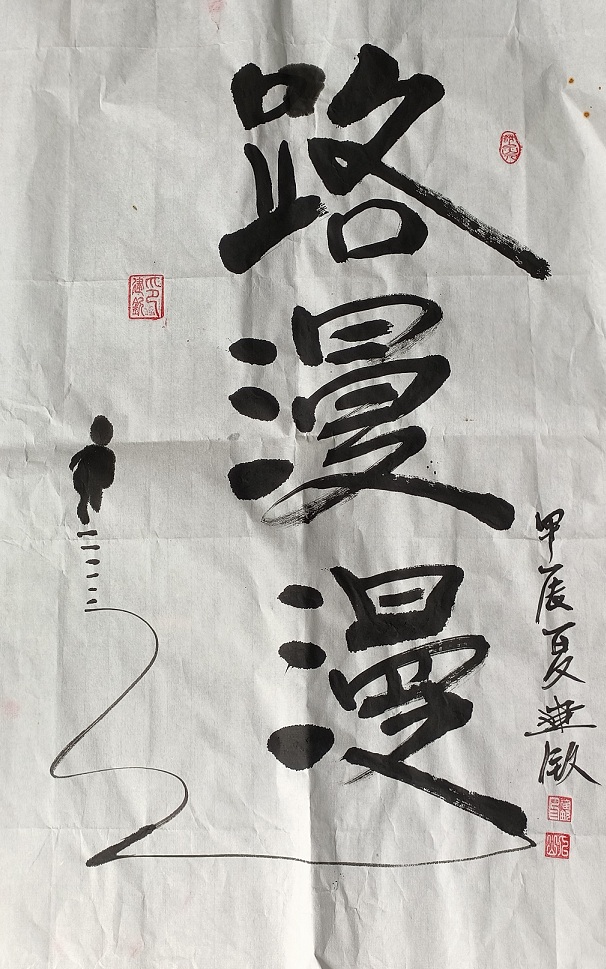 路漫漫
甲辰夏建敏